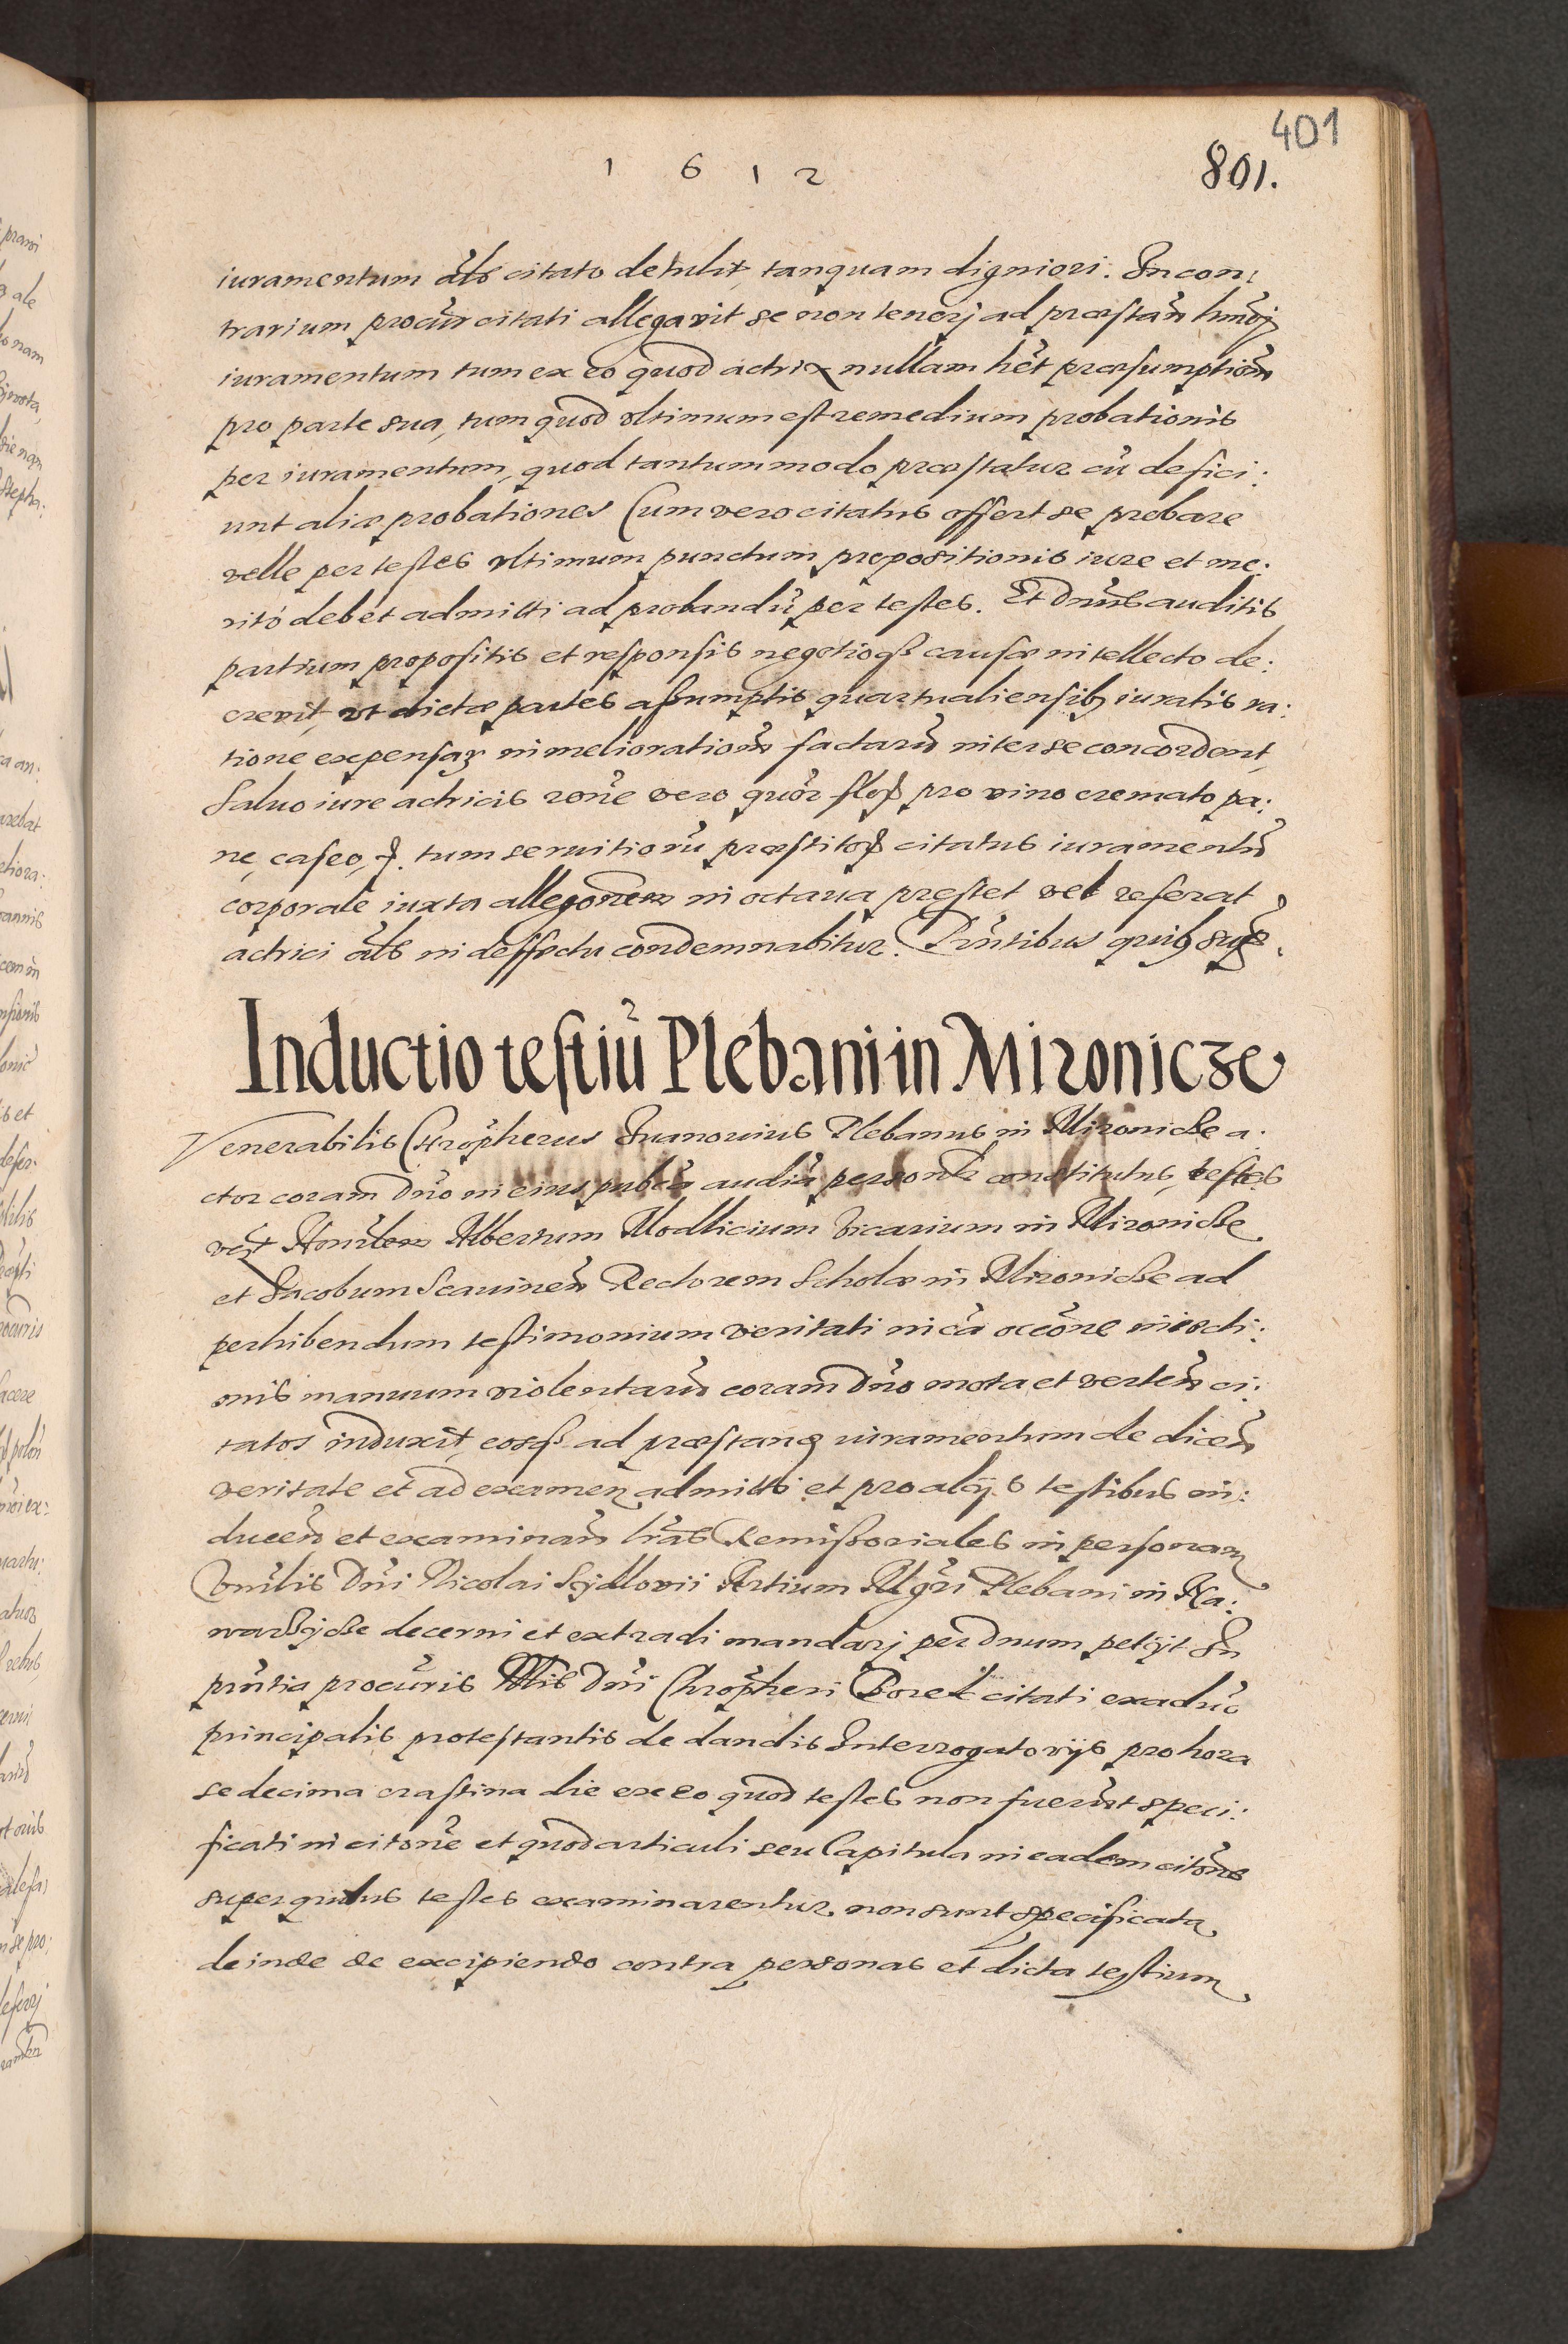 401
1 6 1 2
801.
iuramentum als citato detulit, tanquam digniori. In con:
trarium procur citati allegavit se non tenerj ad præstan hmōj
iuramentum tum ex eo quod actrix nullam het præsumption
pro parte sua, tum quod ultimum est remedium probationis
per iuramentum, quod tantummodo præstatur cū defici:
unt aliæ probationes Cum vero citatus offert se probare
velle per testes ultimum punctum propositionis iure et me:
ritò debet admitti ad probandū per testes. Et Dnus auditis
partium propositis et responsis negotioqȝ causæ intellecto de:
crevit, ut dictæ partes assumptis quartualiensibȝ iuratis ra:
tione expensaȝ in melioration factarū inter se concordent,
Salvo iure actricis rōne vero quor flor pro vino cremato pa:
ne, caseo, tum servitiorū præstitor citatus iuramentū
corporale iuxta allegōnem in octava prestet vel referat
actrici als in deffectu condemnabitur. Prntibus quibȝ supȝ.
Inductio testiū Plebani in Mironicze
Venerabilis Chropherus Iwanovius Plebanus in Mironicze a:
ctor coram Dno in eius publca audia personlr constitutus, testes
vȝ Honrlem Albertum Modlicium Vicarium in Mironicze
et Jacobum Scavinen Rectorem Scholæ in Mironicze ad
perhibendum testimonium veritati in ca occōne iniecti:
onis manuum violentarū coram Dno mota et verten ci:
tatos induxit, eosqȝ ad præstanȝ iuramentum de dicen
veritate et ad examen admitti et pro alijs testibus in:
ducen et examinan lras Remissoriales in personam
Vnrlis Dni Nicolai Scydlovii Artium Mgri Plebani in Ka:
warszycze decerni et extradi mandarj per Dnum petijt In
prntia procuris Dni Chropheri citati ex adūo
principalis protestantis de dandis Interrogatorijs pro hora
sedecima crastina die ex eo quod testes non fuerunt speci:
ficati in citōne et quod articuli seu Capitula in eadem citōne
super quibus testes examinarentur, non sunt specificata,
deinde de excipiendo contra personas et dicta testium